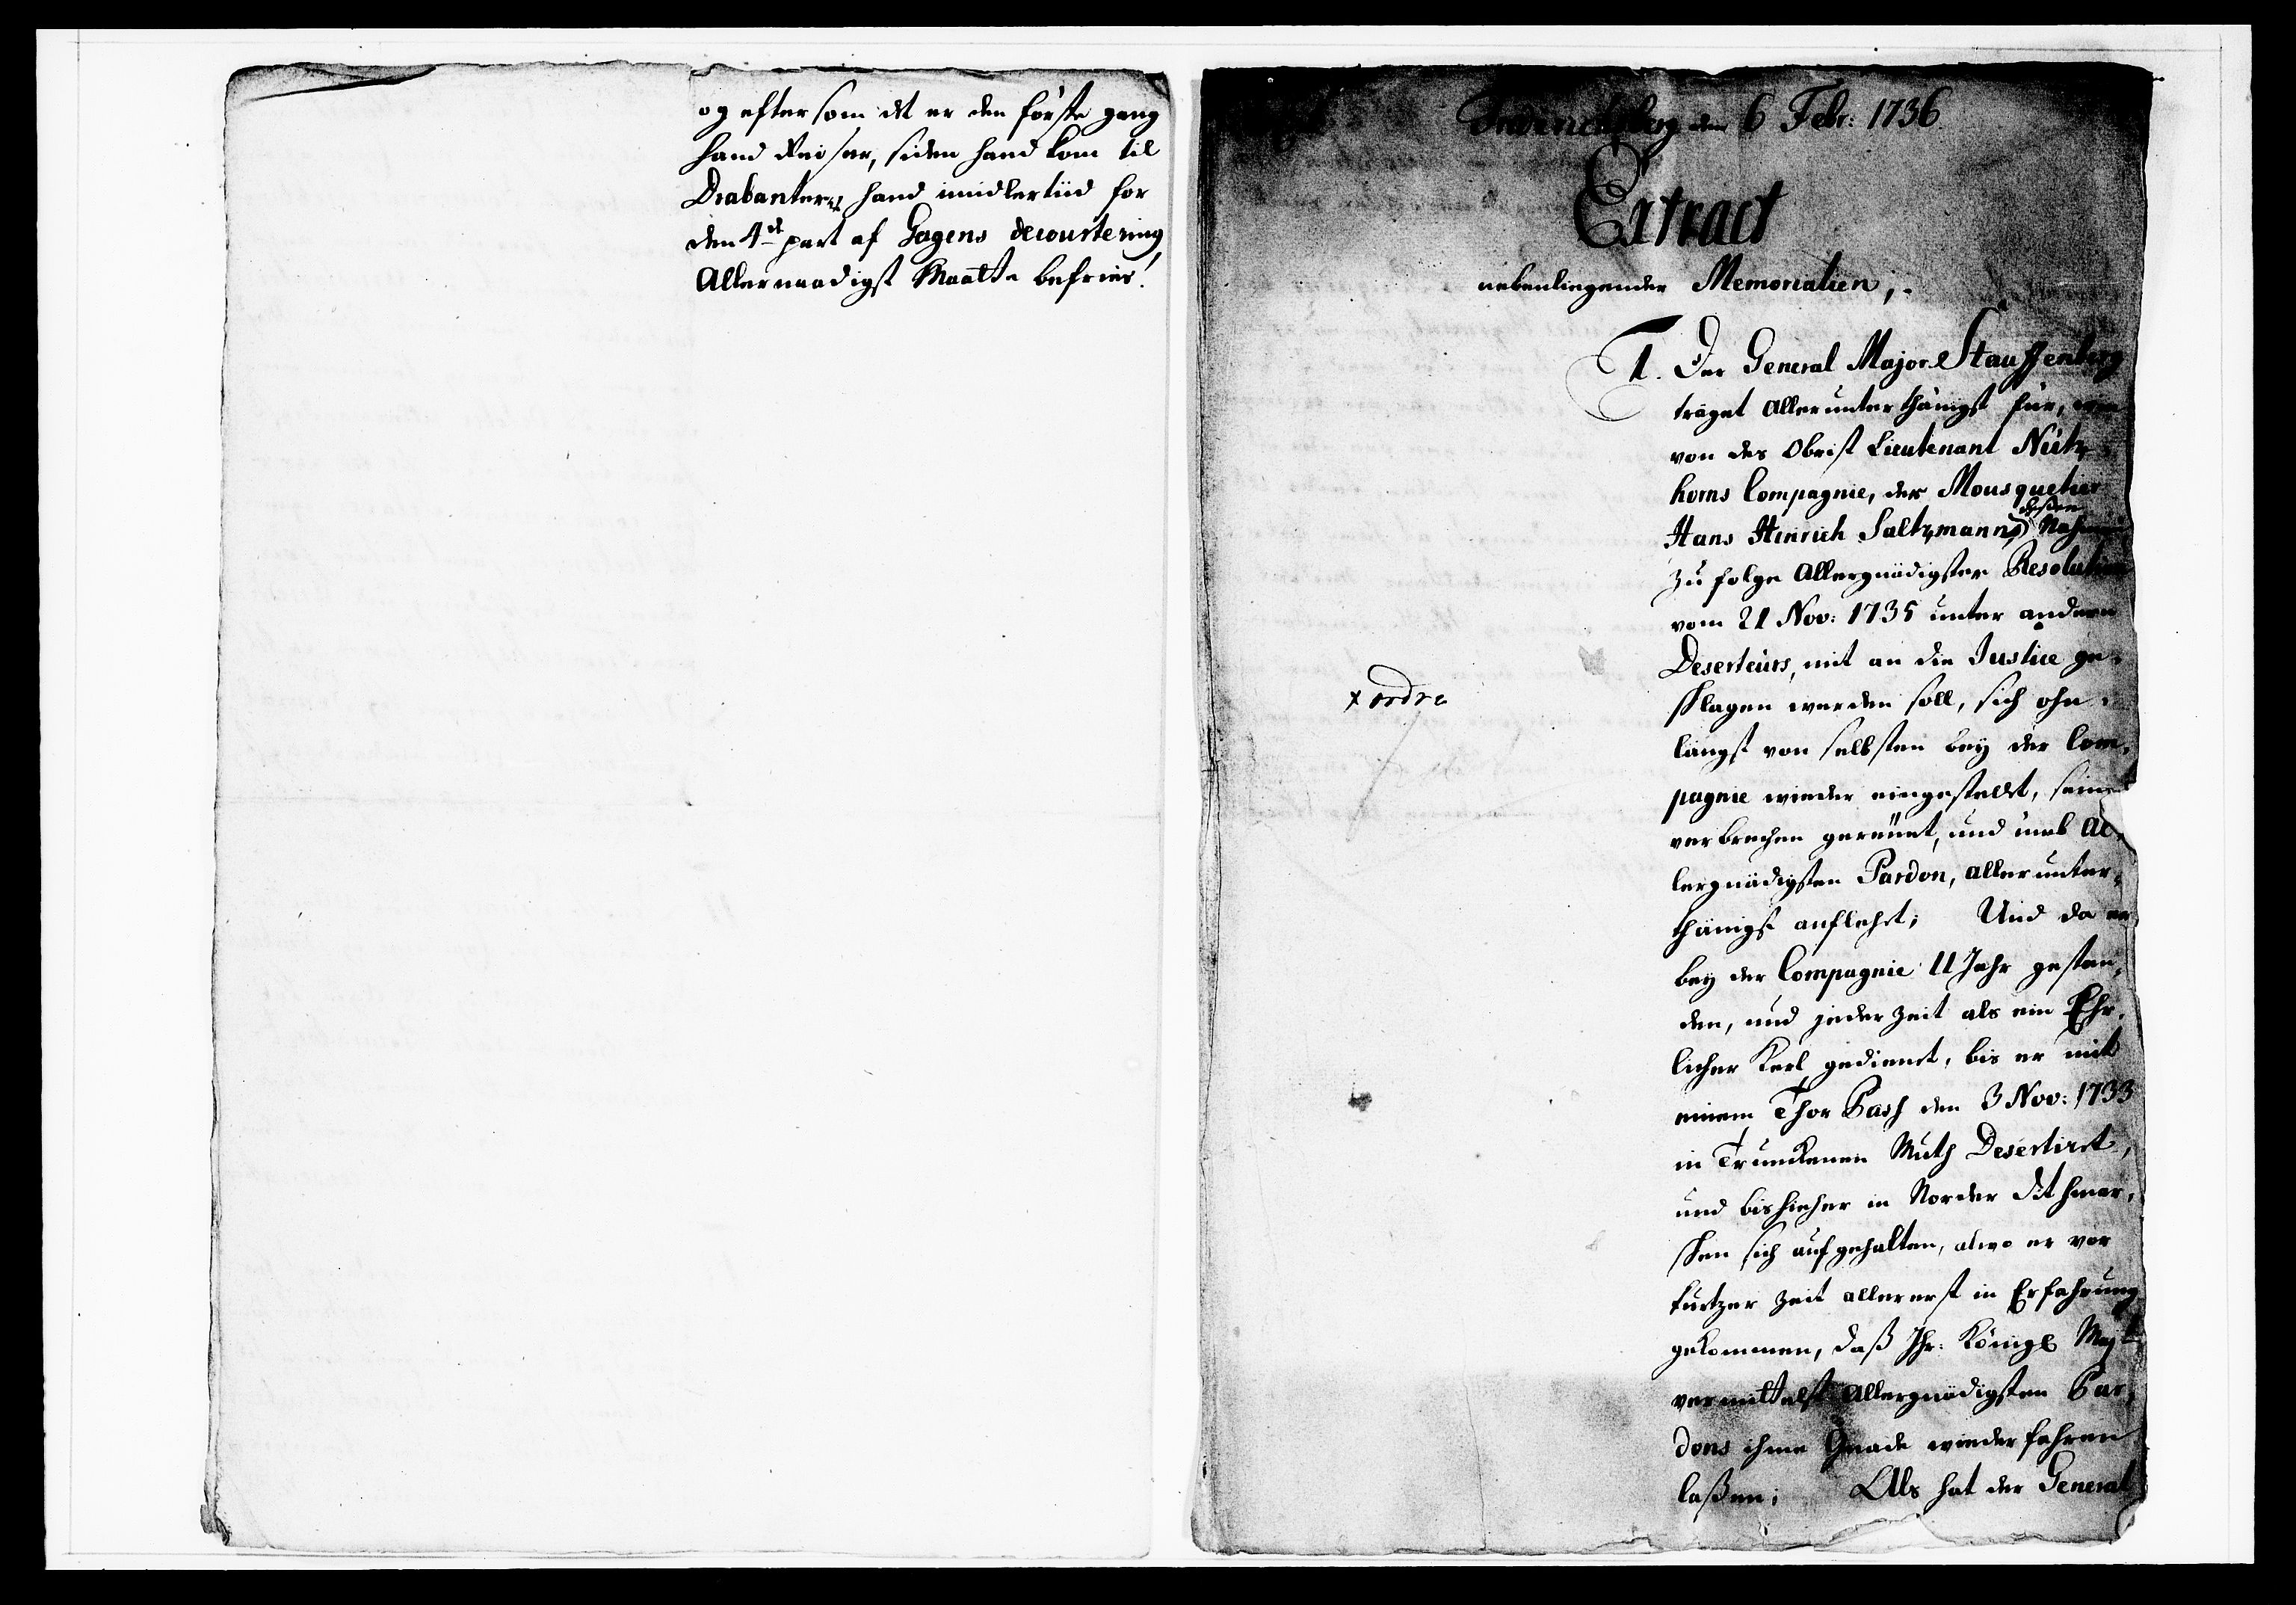 og efter som det er den förste gang
hand Reiser, siden hand kom til
Drabanter, hand imidlertiid for
den 4de part af Gagens decourtering
Allernaadigst Maatte befries!
Friderichsberg den 6 Febr: 1736
Extract
nebenliegender Memorialien,
1. Der General Major Stauffenberg
träget Allerunterthänigst für,
von des Obrist Lieutenant Nütz
horns Compagnie, der Mousquetier
Hans Hinrich Saltzmann, deßen Nahmen
zu folge Allergnädigster Resolution
vom 21 Nov: 1735 unter andern
Deserteurs, mit an die Justice ge-
schlagen werden soll, sich ohn-
längst von selbsten bey der Com-
pagnie wieder eingestellet, seine
verbrechen gereüet, und umb Al-
lergnädigsten Pardon, allerunter-
thänigst anflehet; Und da er
bey der Compagnie 11 Jahr gestan-
den, und jeder Zeit als ein Ehr-
licher Kerl gedienet, bis er mit
einem Thor Pass den 3 Nov: 1733
in Trunckenen Muth Desertiret,
und bishieher in Norder Dithmar-
schen sich aufgehalten, alwo er vor
kurtzer Zeit allererst in Erfahrung
gekommen, daß Ihr: Königl Mayt
vermittelst Allergnädigsten Par-
dons ihme Gnade wiederfahren
laßen; Als hat der General
x ordre